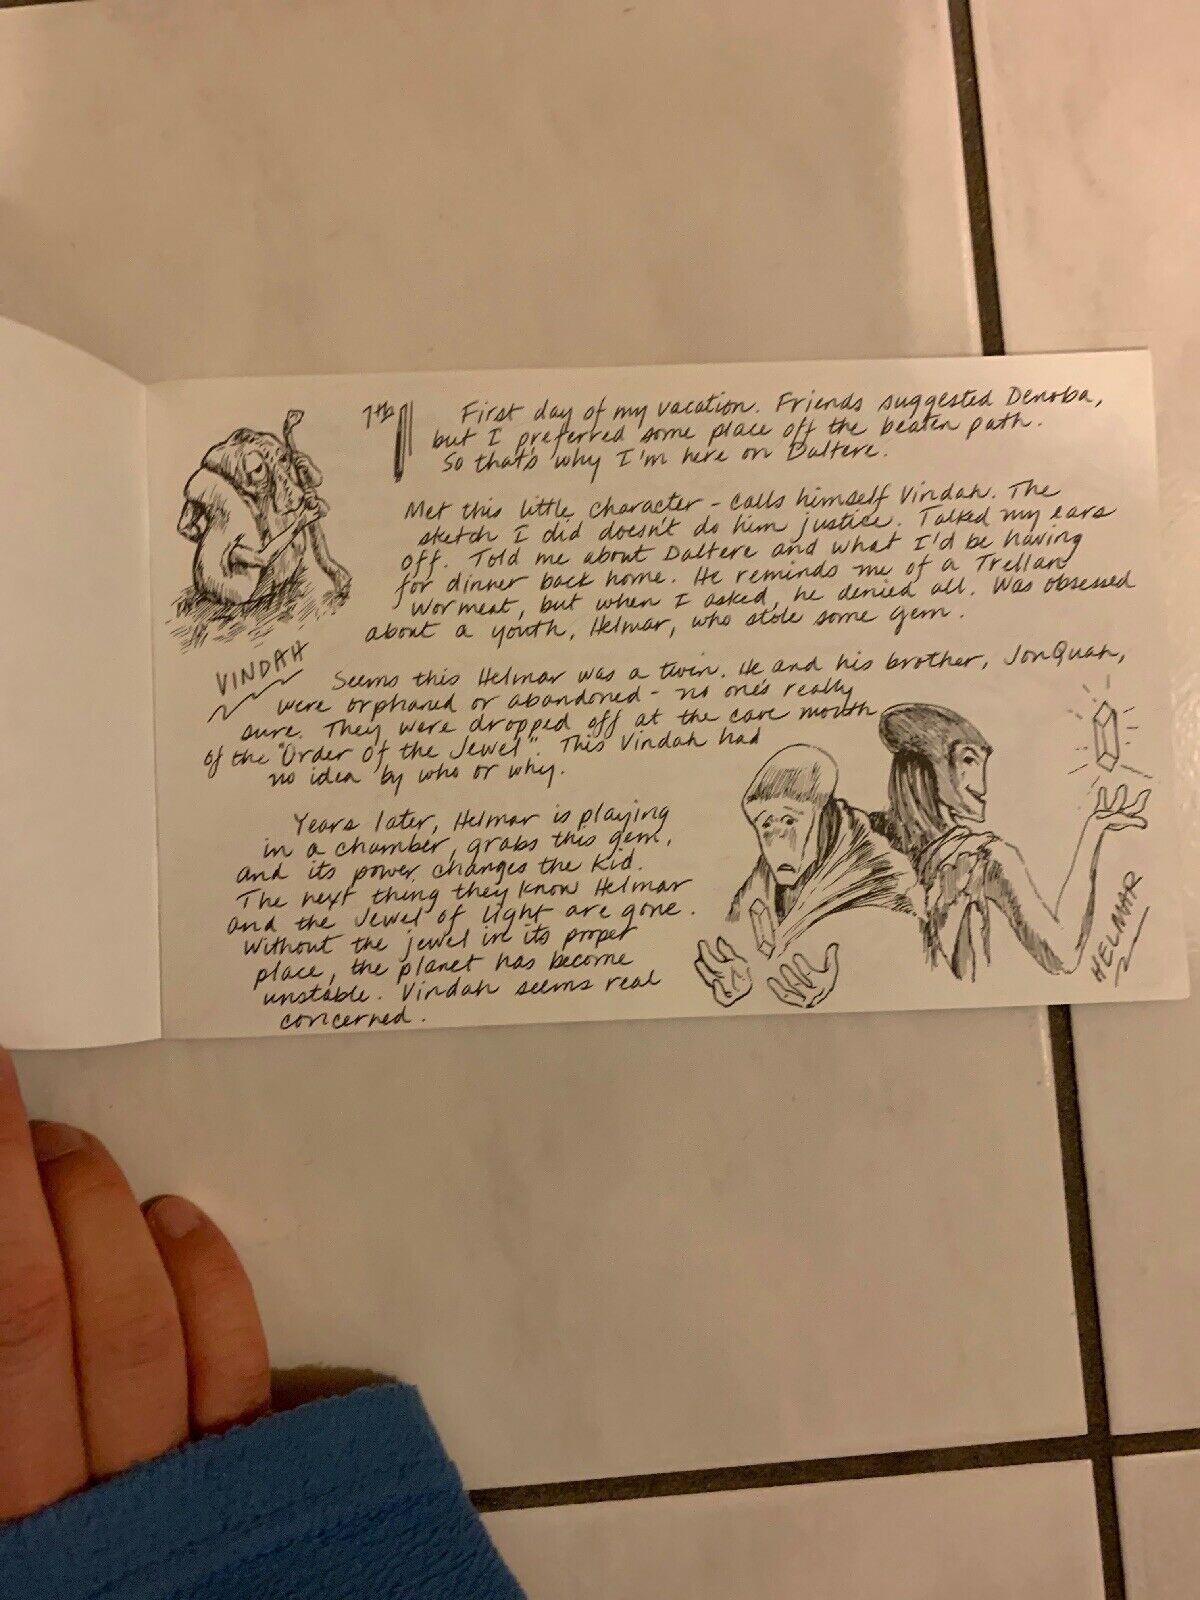 7th
First day of my vacation. Friends suggested Denoba,
but I preferred some place off the beaten path.
So that's why I'm here on Daltere.
Met this little character - calls himself Vindah. The
sketch I did doesn't do him justice. Talked my ears
off. Told me about Daltere and what I'd be having
for dinner back home. He reminds me of a Trellan
Wormeat, but when I asked, he denied all. Was obsessed
about a youth, Helmar, who stole some gem.
VINDAH
Seems this Helmar was a twin. He and his brother, JonQuah,
were orphaned or abandoned - no one's really
sure. They were dropped off at the cave mouth
of the "Order of the Jewel". This Vindah had
no idea by who or why.
Years later, Helmar is playing
in a chamber, grabs this gem,
and its power changes the kid.
The next thing they know Helmar
and the Jewel of Light are gone.
Without the jewel in its proper
place, the planet has become
unstable. Vindah seems real
concerned.
HELMAR